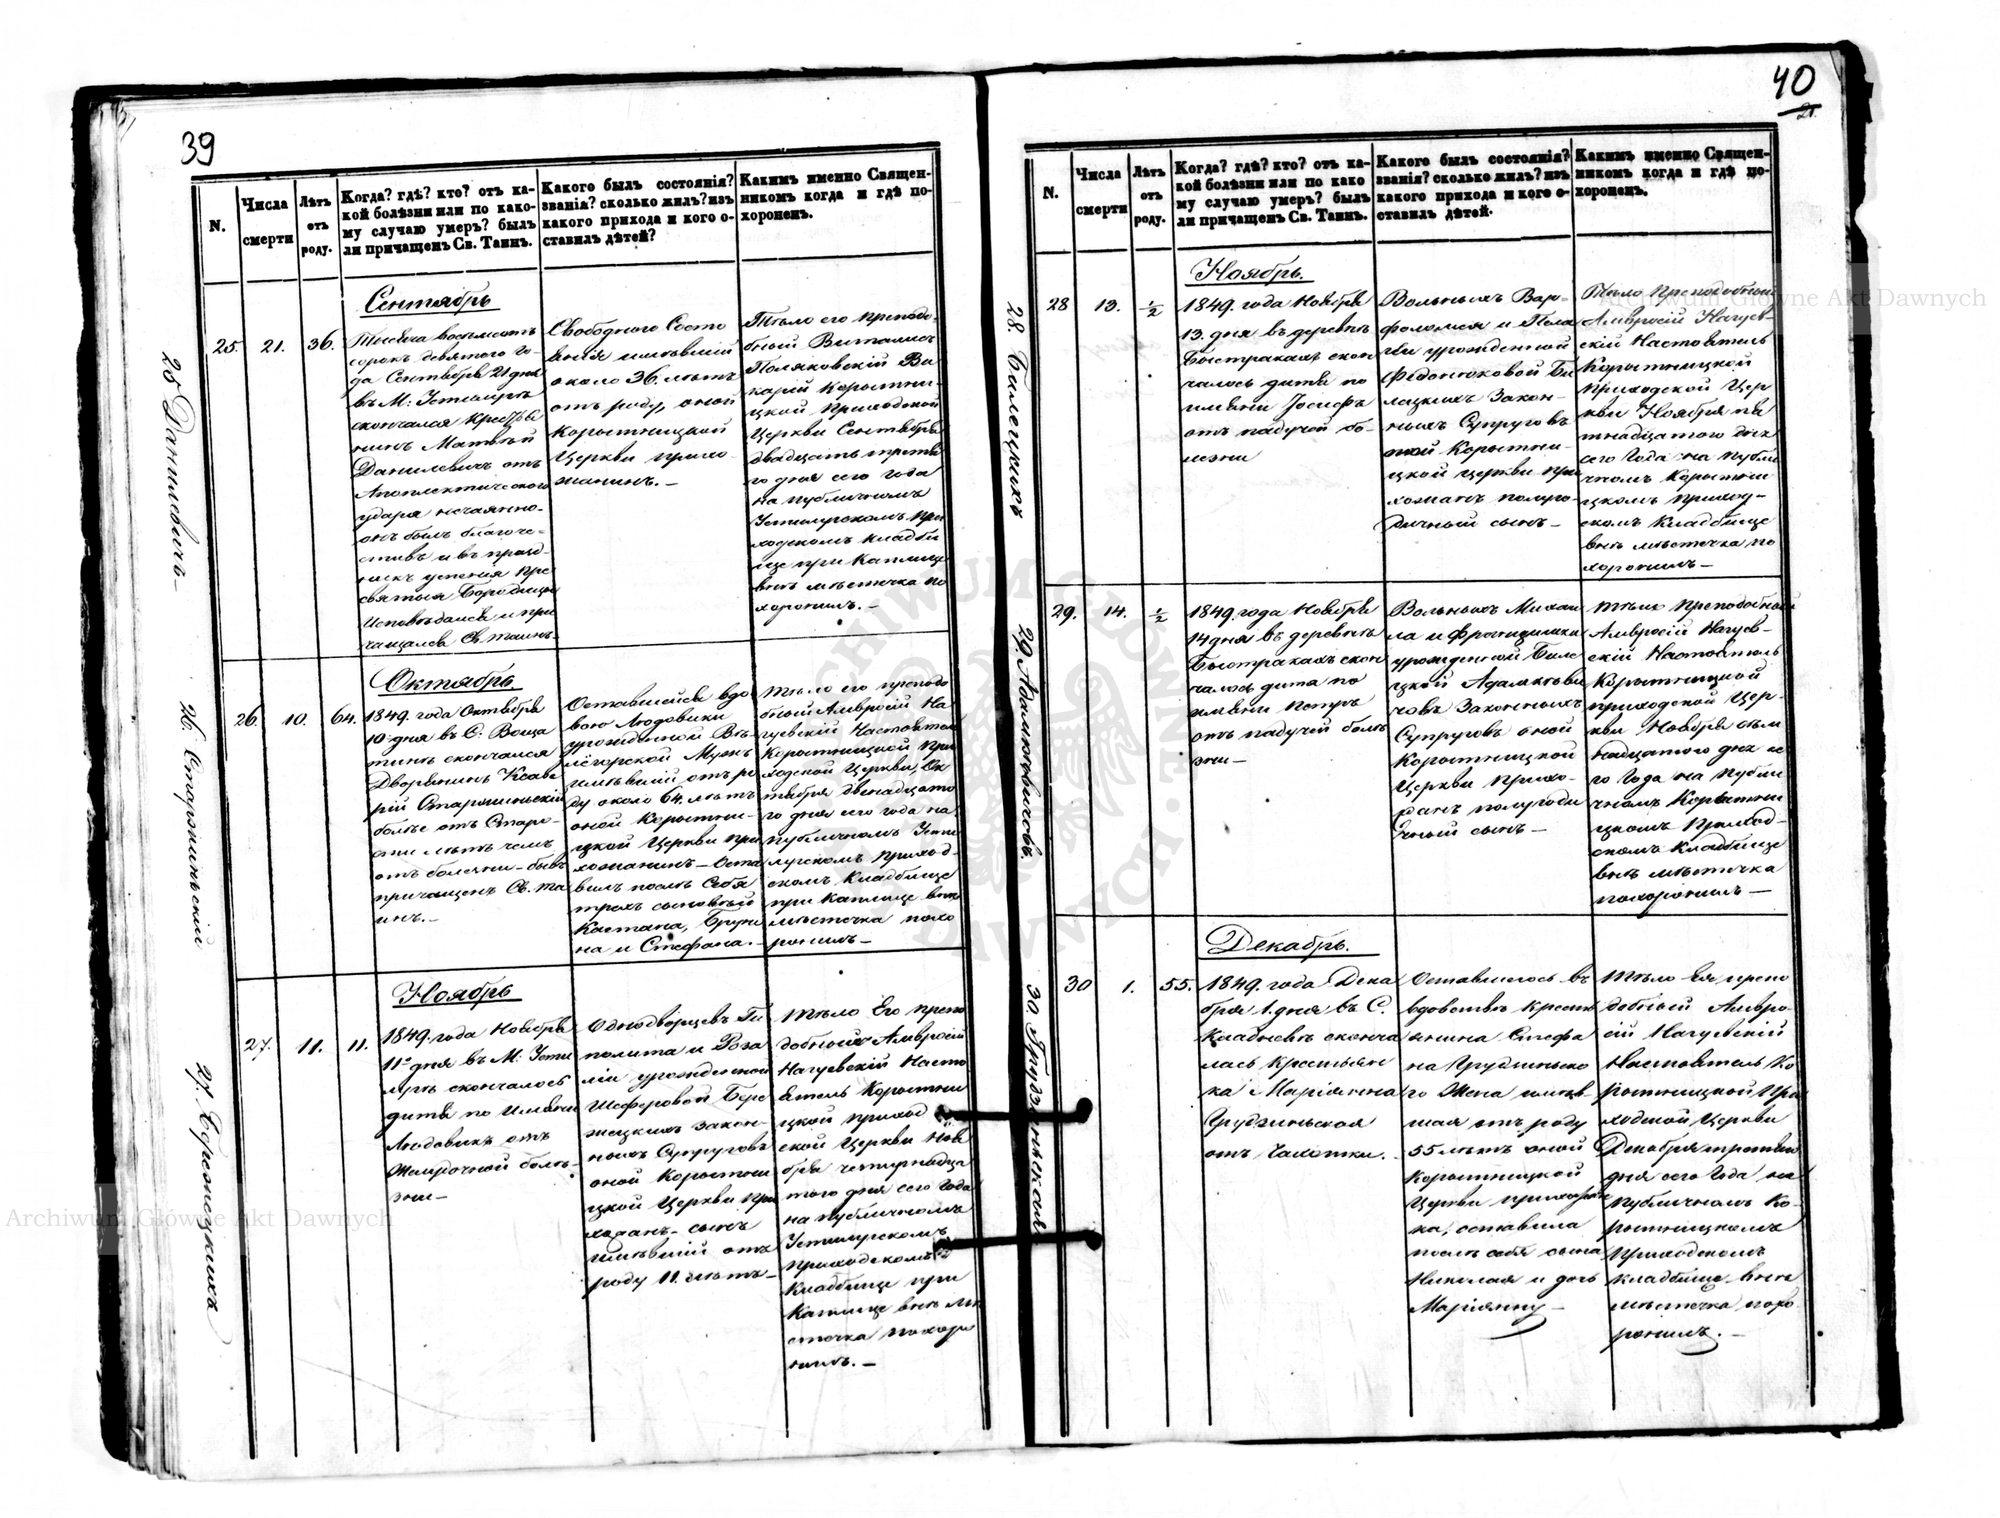 39
N.
Числа смерти
Лѣтъ отъ роду.
Когда? гдѣ? кто? отъ ка-
кой болѣзни или по како-
му случаю умеръ? былъ
ли причащенъ Св. Таинъ.
Какого былъ состоянія?
званія? сколько жилъ? изъ
какого прихода и кого о-
ставилъ дѣтей?
Какимъ именно Священ-
никомъ когда и гдѣ по-
хороненъ.
25 Данилевичъ
Сентябрь
25.
21.
36.
Тысяча восемсотъ
сорокъ девятого го-
да Сентября 21 дня
въ М: Устилугѣ
скончался Крестья
нинъ Матвѣй
Данилевичъ отъ
Апоплектического
удара нечаянно-
онъ былъ благоче-
стивъ и въ празд-
никъ успенія Пре
святыя Бородицы
Исповѣдался и при
чащался Св. таинъ
Свободного Состо
янія имѣвшій
около 36. лѣтъ
отъ роду, оной
Коростницкой
Церкви прихо-
жанинъ. —
Тѣло его преподо-
бный Виталисъ
Поляковскій Ви
карій Коростни-
цкой Приходской
Церкви Сентября
двадцать третья
го дня сего года
на публичномъ
Устилугскомъ При
ходскомъ кладби
ще при Каплице
внѣ мѣстечка по
хоронилъ. —
26. Старжинскій
Октябрь.
26.
10.
64.
1849. года Октября
10 дня въ С. Воща
тинѣ скончался
Дворянинъ Ксаве
рій Старжинскій
болѣе отъ Старо-
сти лѣтъ чемъ
отъ болезни – бывъ
причащенъ Св. та
инъ. —
Оставшейся вдо
вою Людовики
урожденной Вѣ-
Мужъ
имѣвшій отъ ро
ду около 64. лѣтъ
оной Коростни-
цкой Церкви при
хожанинъ – Оста
вилъ послѣ Себя
трехъ сыновей
Каетана, Бруно
на и Стефана. –
Тѣло его преподо
бный Амвросій На
гуевскій Настоятель
Коростницкой При
ходской Церкви, Ок
тября двенадцато
го дня сего года на
публичномъ Усти
лугскомъ приход-
скомъ Кладбище
при Каплице внѣ
мѣстечка похо
ронилъ —
27. Бережецкихъ
Ноябрь
27.
11.
11.
1849. года Ноября
11 дня въ М. Усти
лугѣ скончалось
дитя по Имяни
Людовикъ отъ
болѣ-
зни —
Однодворцевъ Ги
полита и Роза
ліи урожденной
Шеферовой Бере
жецкихъ закон-
ныхъ Супруговъ
оной Коростни
цкой Церкви при
хожанъ – сынъ
имѣвшій отъ
роду 11. лѣтъ –
Тѣло Его препо
добный Амвросій
Нагуевскій Насто
ятель Коростни
цкой приход
ской Церкви Ноя
бря четырнадца
того дня сего года
на публичномъ
Устилугскомъ
приходскомъ
Кладбище при
Каплице внѣ мѣ
стечка похоро
нилъ. —
40
N.
Числа смерти
Лѣтъ отъ роду.
Когда? гдѣ? кто? отъ ка-
кой болѣзни или по како
му случаю умеръ? былъ
ли причащенъ Св. Таинъ.
Какого былъ состоянія?
званія? сколько жилъ? изъ
какого прихода и кого о-
ставилъ дѣтей.
Какимъ именно Священ-
никомъ когда и гдѣ по-
хороненъ.
28. Билецкихъ
Ноябрь.
28
13.
½
1849. года Ноября
13. дня въ деревнѣ
Быстракахъ скон
чалось дитя по
имяни Іосифъ
отъ падучей бо-
лезни
Вольныхъ Вар-
фоломея и Пела
гіи урожденной
Федонюковой Би
лецкихъ Закон-
ныхъ Супруговъ
оной Коростни-
цкой церкви при
хожанъ полуго-
дичный сынъ –
Тѣло Преподобный
Амвросій Нагуев-
скій Настоятель
Коростницкой
Приходской Цер
кви Ноября пя
тнадцатого дня
сего Года на Публи
чномъ Коростни
цкомъ Приход-
скомъ Кладбище
внѣ мѣстечка по
хоронилъ —
29. Адамовичовъ.
29.
14.
½
1849. года Ноября
14 дня въ деревнѣ
Быстракахъ скон
чалось дитя по
имяни Петръ
отъ падучей болѣ
зни —
Вольныхъ Михаи
ла и Францишки
урожденной Биле
цкой
Законныхъ
Супруговъ оной
Коростницкой
Церкви Прихо-
жанъ полугоди
чный сынъ —
Тѣло Преподобный
Амвросій Нагуев-
скій Настоятель
Коростницкой
приходской Цер-
кви Ноября
надцатого дня се
го Года на Публи
чномъ Коростни
цкомъ Приход-
скомъ Кладбище
внѣ мѣстечка
похоронилъ —
30. Грудзинская
Декабрь.
30
1.
55.
1849. года Дека
бря 1. дня въ С.
Кладневѣ сконча
лась Крестьян
ка Маріянна
Грудзинская
отъ Чахотки. –
Оставшегось въ
вдовствѣ Кресть
янина Стефа
на Грудзинско
го Жена имѣв-
шая отъ роду
55 лѣтъ оной
Коростницкой
Церкви прихожан
ка, оставила
послѣ себя сына
Николая и дочь
Маріянну —
Тѣло Ея препо
добный Амвро-
сій Нагуевскій
Настоятель Ко
ростницкой При
ходской Церкви
Декабря третья
дня сего Года на
Публичномъ Ко-
ростницкомъ
Приходскомъ
кладбище внѣ
мѣстечка похо
ронилъ. —
Archiwum Główne Akt Dawnych
Archiwum Główne Akt Dawnych
ARCHIWUM GŁÓWNE AKT DAWNYCH